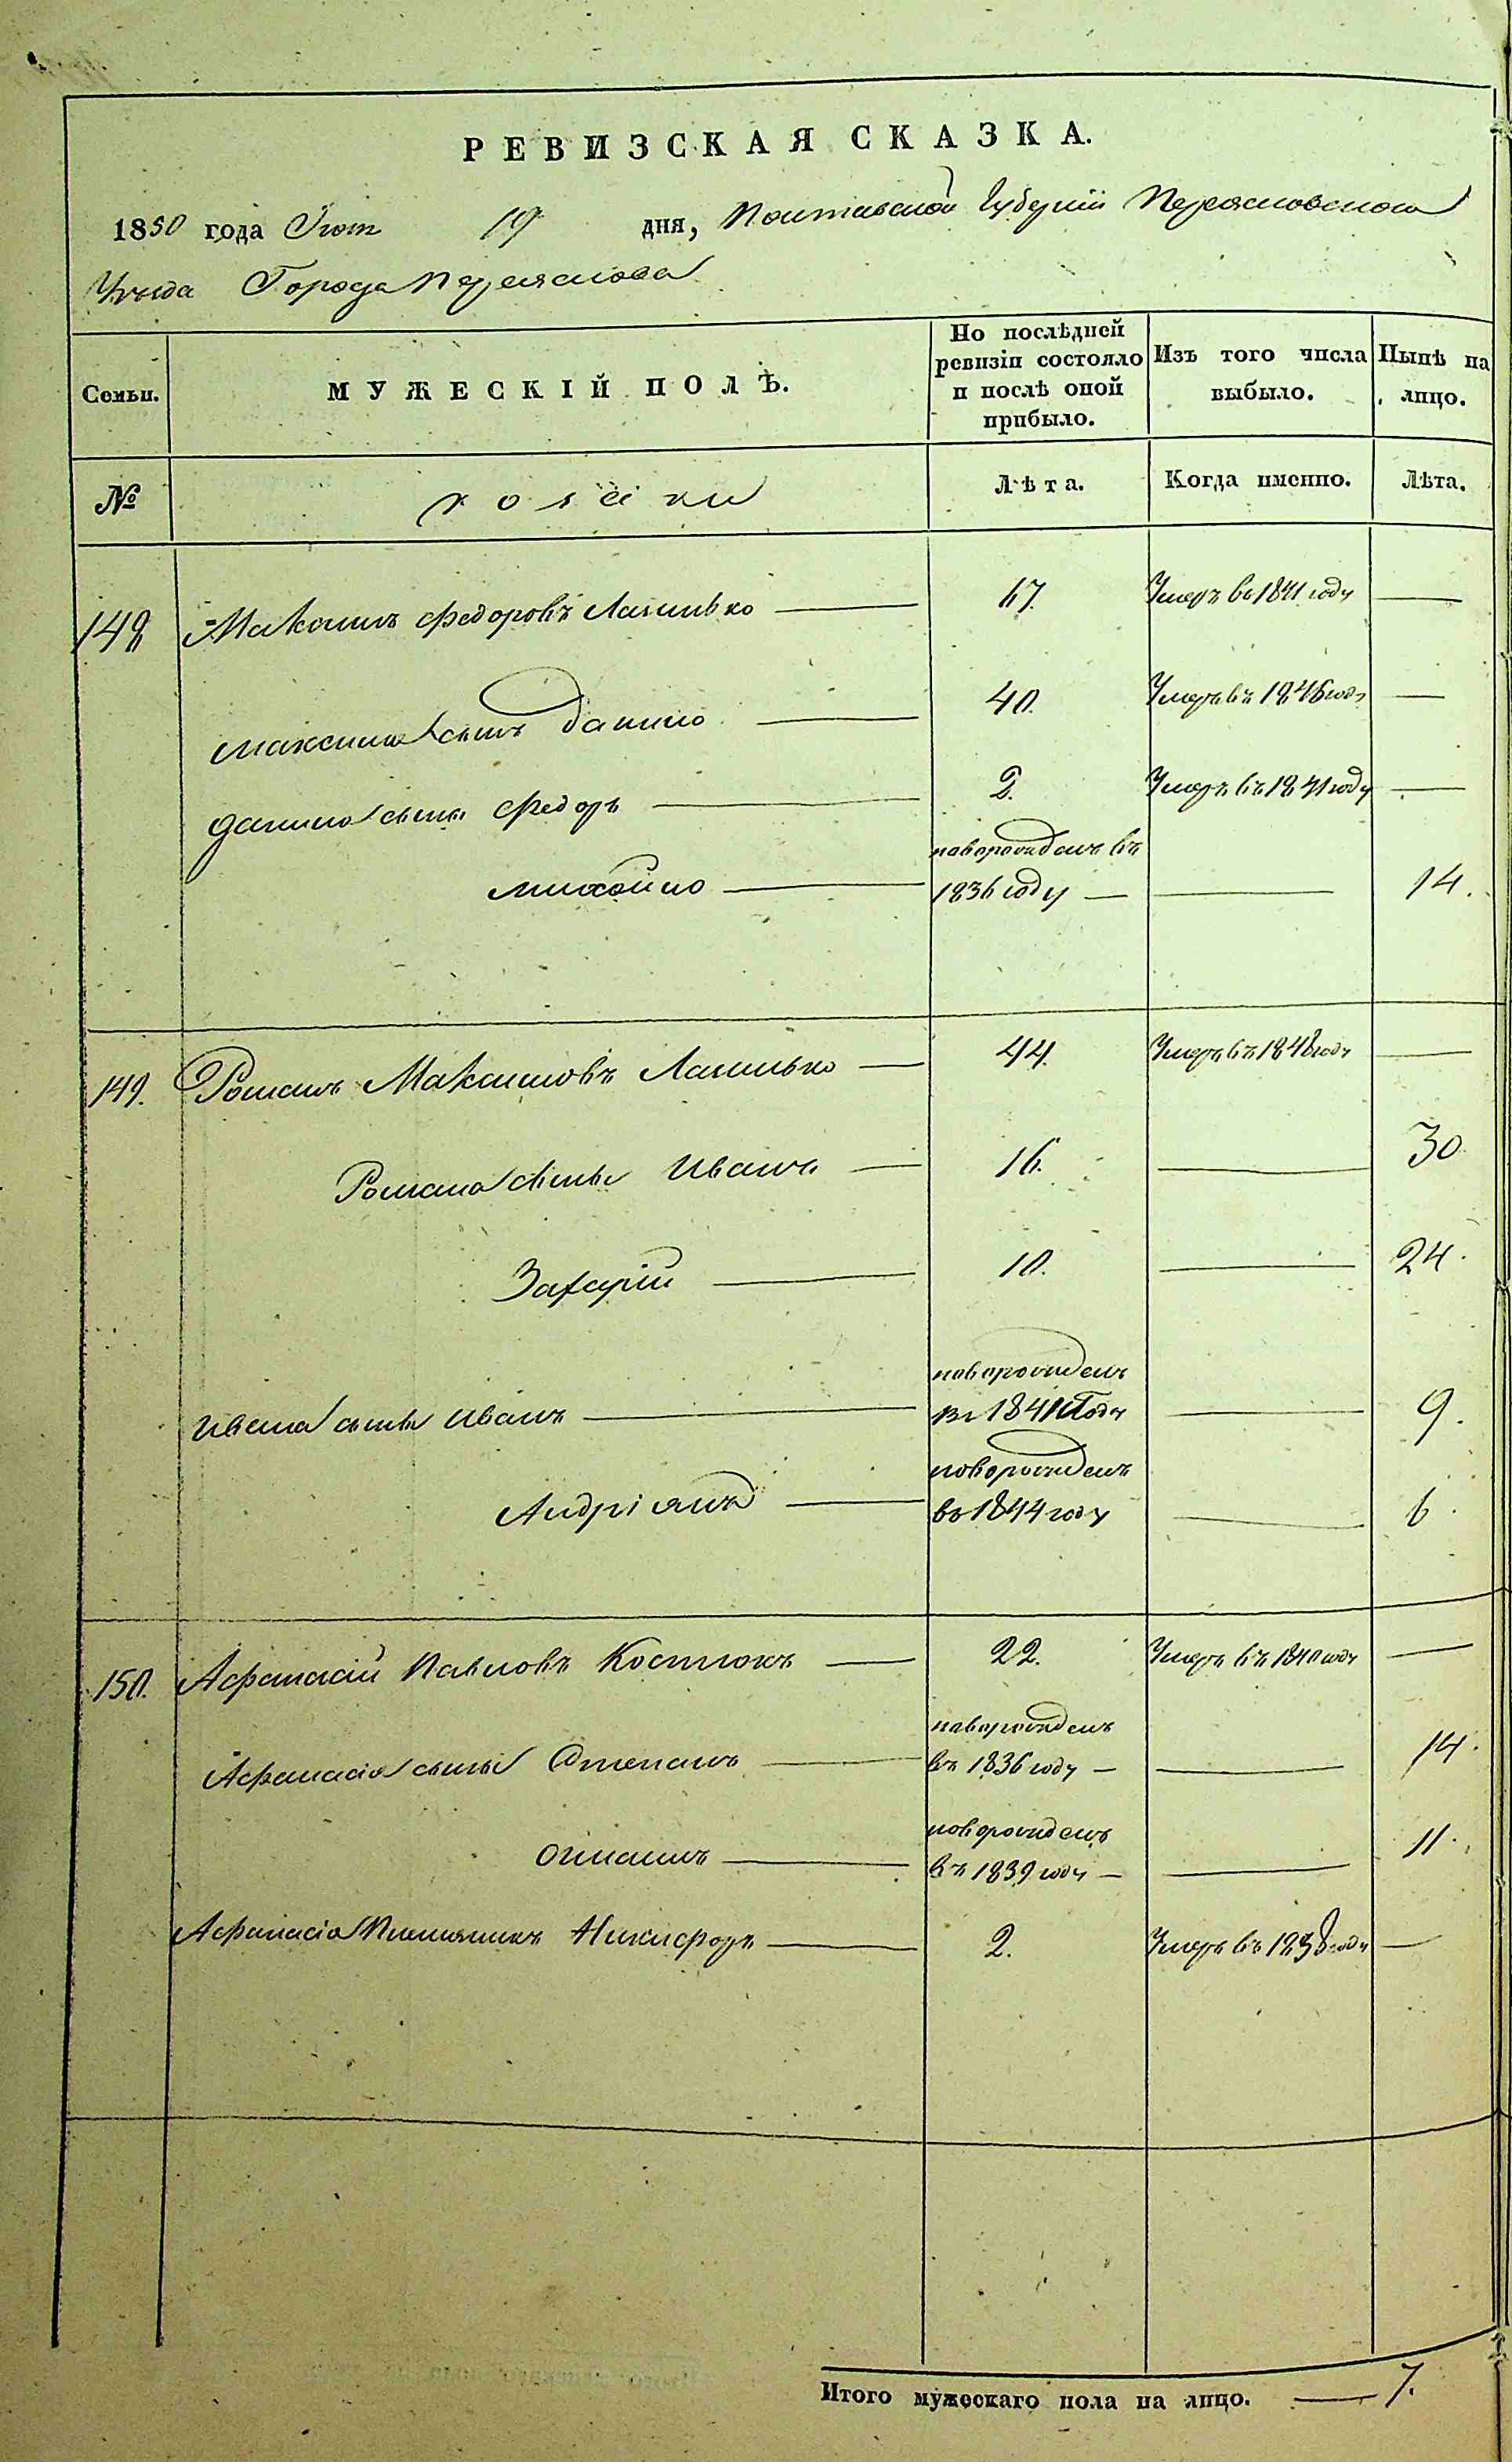 РЕВИЗСКАЯ СКАЗКА.
1850 года 19 дня, Полтавской Губерніи Переясловского
Уезда Города Переяслова
Семьи. МУЖЕСКІЙ ПОЛЪ. По послѣдней ревизіи состояло и послѣ оной прибыло. Изъ того числа выбыло. Нынѣ на лицо.
№ козаки Лѣта. Когда именно. Лѣта.
148 Максимъ Федоровъ 67. Умеръ въ 1841 году —
Максима сынъ Данило 40. Умеръ въ 1846 году —
Данила сынъ Федоръ 2. Умеръ въ 1841 году —
Михайло новорожденъ въ 1836 году — — 14.
149. Романъ Максимовъ 44. Умеръ въ 1848 году —
Романа сынъ Иванъ 16. — 30
Захарій 10. — 24.
Ивана сынъ Иванъ новорожденъ въ 1841 году — 9.
Андріянъ новорожденъ въ 1844 году — 6.
150. Афанасій Павловъ Костюкъ 22. Умеръ въ 1840 году —
Афанасія сынъ Степанъ новорожденъ въ 1836 году — — 14.
новорожденъ въ 1839 году — — 11.
Афанасія Племянникъ Никифоръ 2. Умеръ въ 1838 году —
Итого мужескаго пола на лицо. — 7.